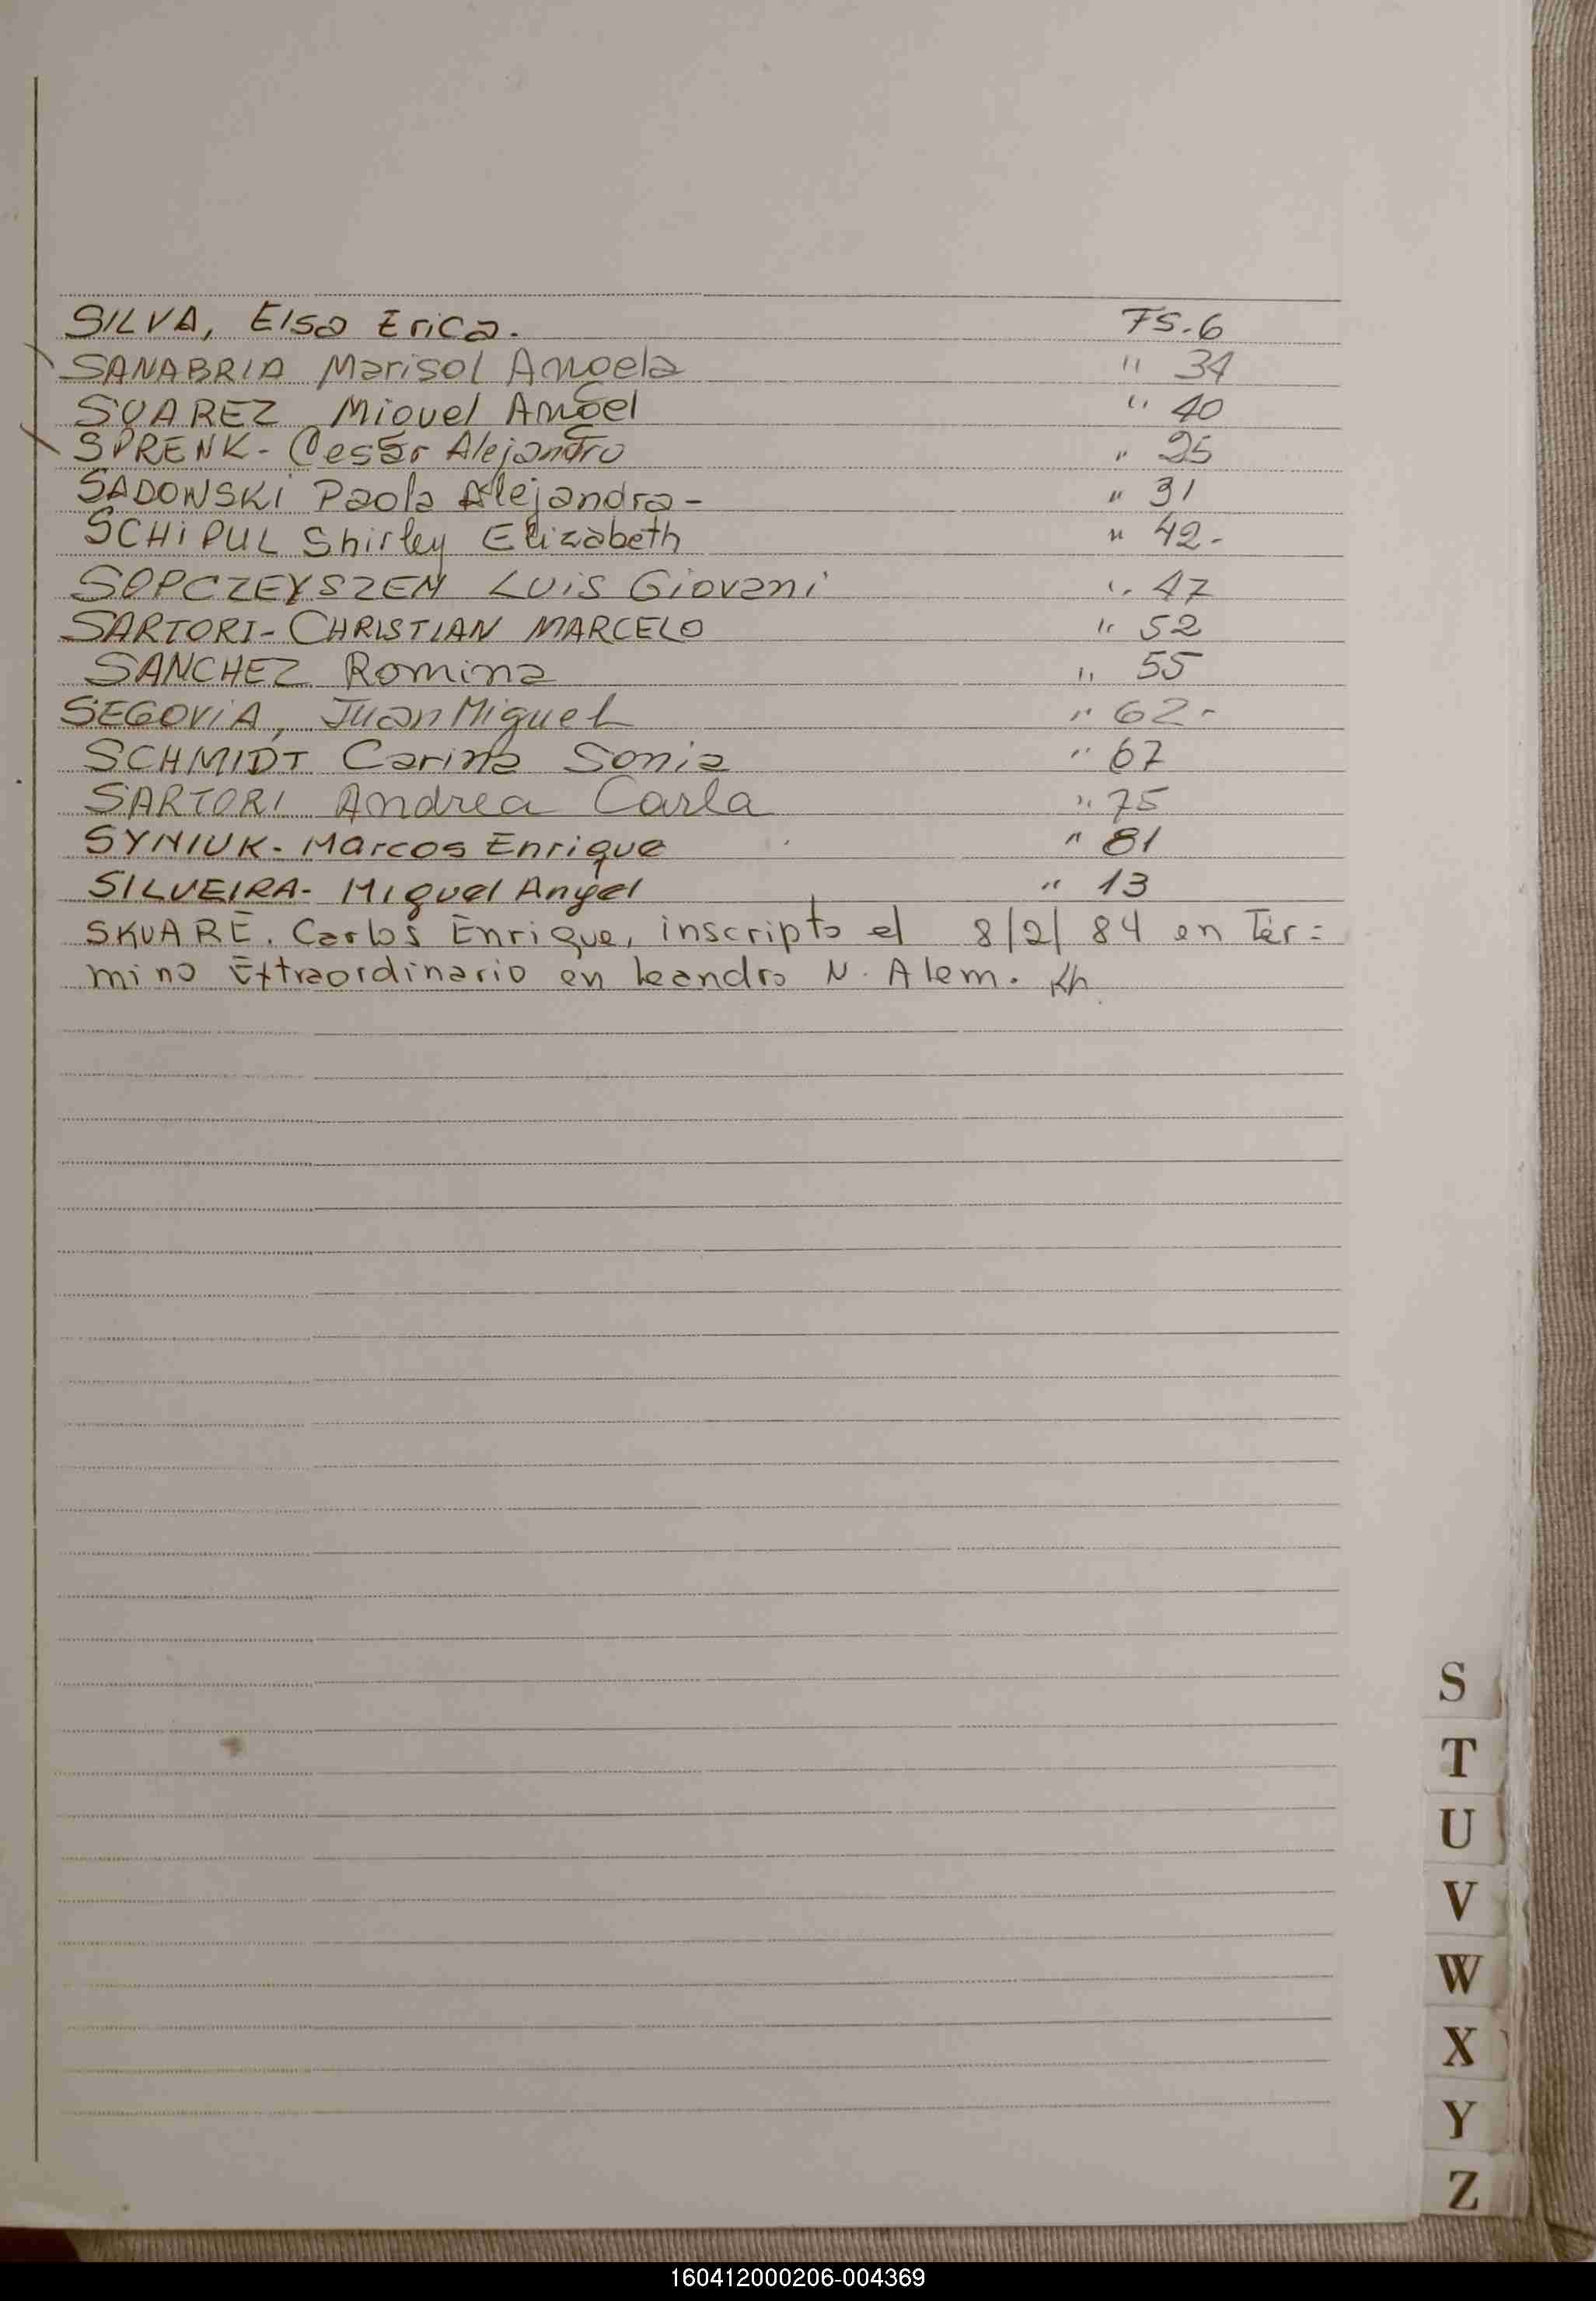 SILVA, Elsa Erica. FS. 6
SANABRIA Marisol Angela " 34
SUAREZ Miguel Angel " 40
SPRENK - Cesar Alejandro " 25
SADOWSKi Paola Alejandra - " 31
SCHiPUL Shirley Elizabeth " 42-
SOPCZEYSZEN LUiS Giovani " 47
SARTORI - CHRISTIAN MARCELO " 52
SANCHEZ Romina " 55
SEGOViA, Juan Miguel " 62-
SCHMIDT Carina Sonia " 67
SARTORI Andrea Carla " 75
SYNIUK - Marcos Enrique " 81
SILVEIRA - Miguel Angel " 13
SKUARE. Carlos Enrique, inscripto el 8/2/84 en Tér=
mino Extraordinario en Leandro N. Alem.
S
T
U
V
W
X
Y
Z
160412000206-004369